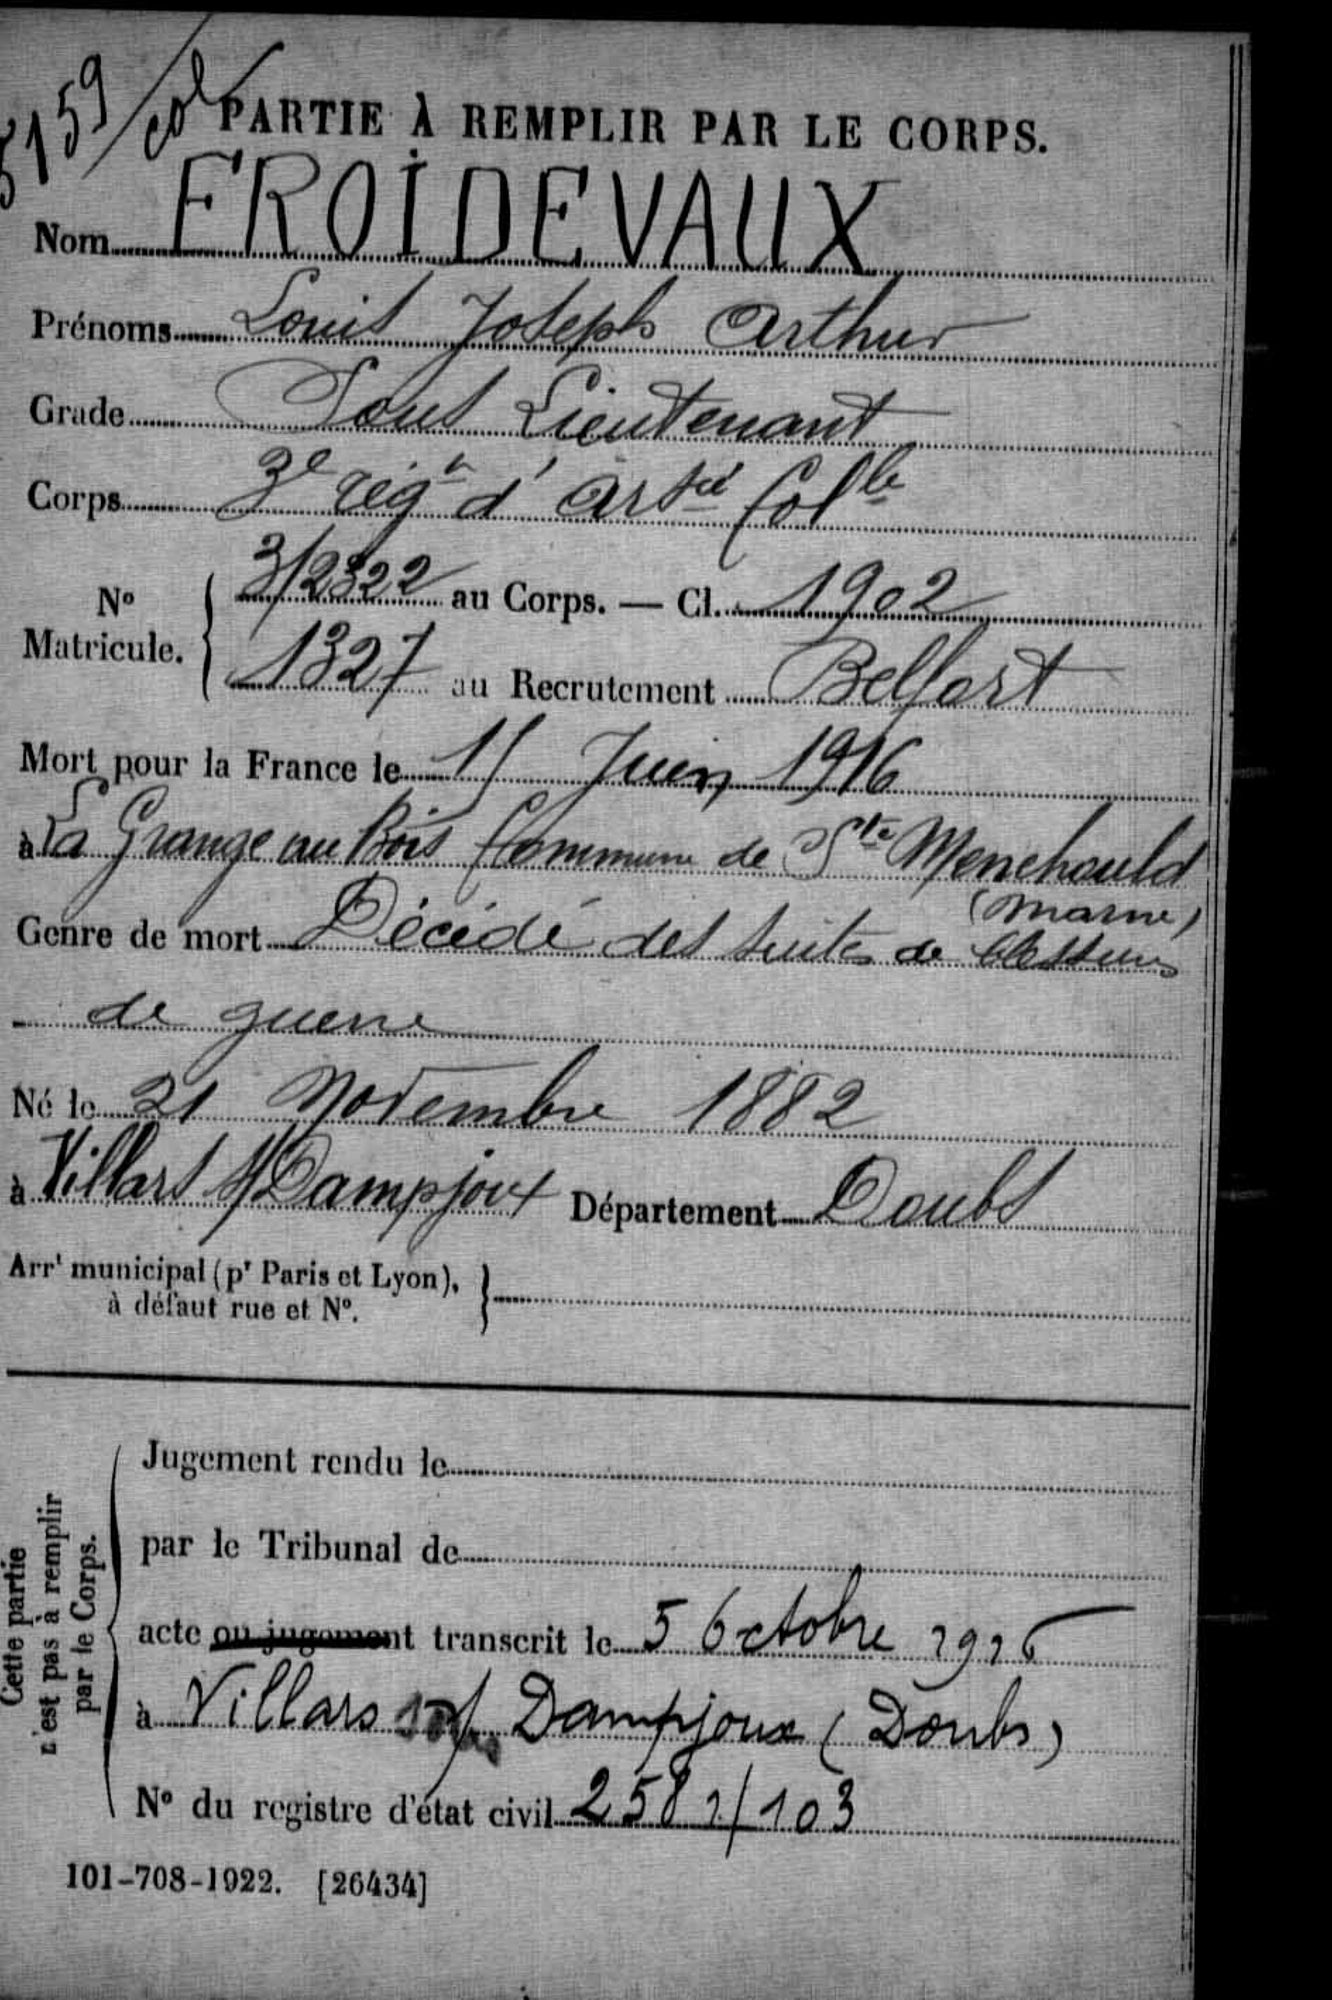 5159/col
PARTIE À REMPLIR PAR LE CORPS.
Nom FROIDEVAUX
Prénoms Louis Joseph Arthur
Grade Sous Lieutenant
Corps 3e régt d'Artie Colle
No Matricule. 3/2322 au Corps. — Cl. 1902
1327 au Recrutement Belfort
Mort pour la France le 15 Juin 1916
à La Grange au Bois Commune de Ste Menehould
(Marne)
Genre de mort Décédé des suites de blessures
de guerre
Né le 21 Novembre 1882
à Villars s/ Dampjoux Département Doubs
Arrt municipal (pr Paris et Lyon),
à défaut rue et No.
Cette partie
n'est pas à remplir
par le Corps.
Jugement rendu le
par le Tribunal de
acte ou jugement transcrit le 5 Octobre 1916
à Villars s/ Dampjoux (Doubs)
No du registre d'état civil 2581/103
101-708-1922. [26434]